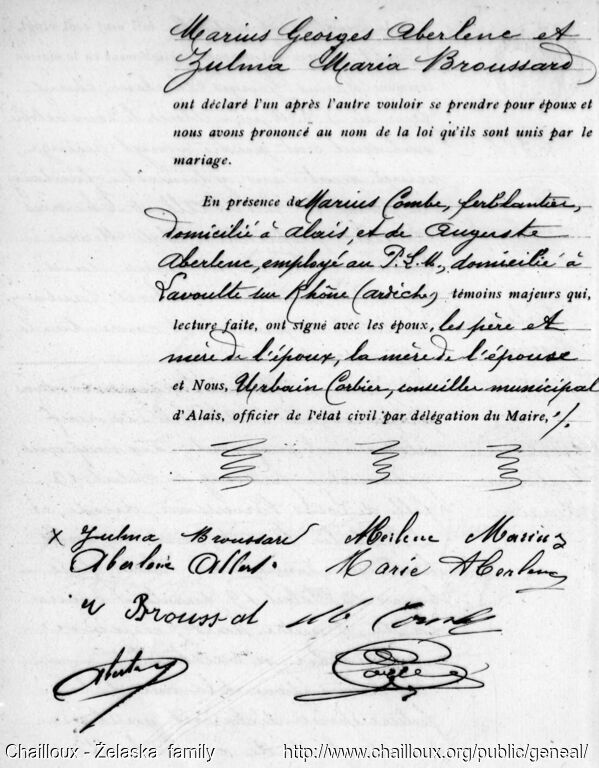 Marius Georges Aberlenc et
Zulma Maria Broussard
ont déclaré l'un après l'autre vouloir se prendre pour époux et
nous avons prononcé au nom de la loi qu'ils sont unis par le
mariage.
En présence de Marius Combe, ferblantier,
domicilié à Alais, et de Auguste
Aberlenc, employé au P.L.M., domicilié à
Lavoulte sur Rhône (Ardèche) témoins majeurs qui,
lecture faite, ont signé avec les époux, les père et
mère de l'époux, la mère de l'épouse
et Nous, Urbain Corbier, conseiller municipal
d'Alais, officier de l'état civil par délégation du Maire, ./.
x Zulma Broussard Aberlenc Marius
Aberlenc Albert Marie Aberlenc
Vve Broussard M Combe
Chailloux - Żelaska family http://www.chailloux.org/public/geneal/